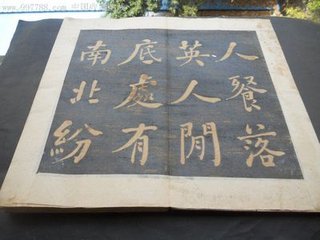 人餐落
英人閒
底處有
南北紛
www.997788.com